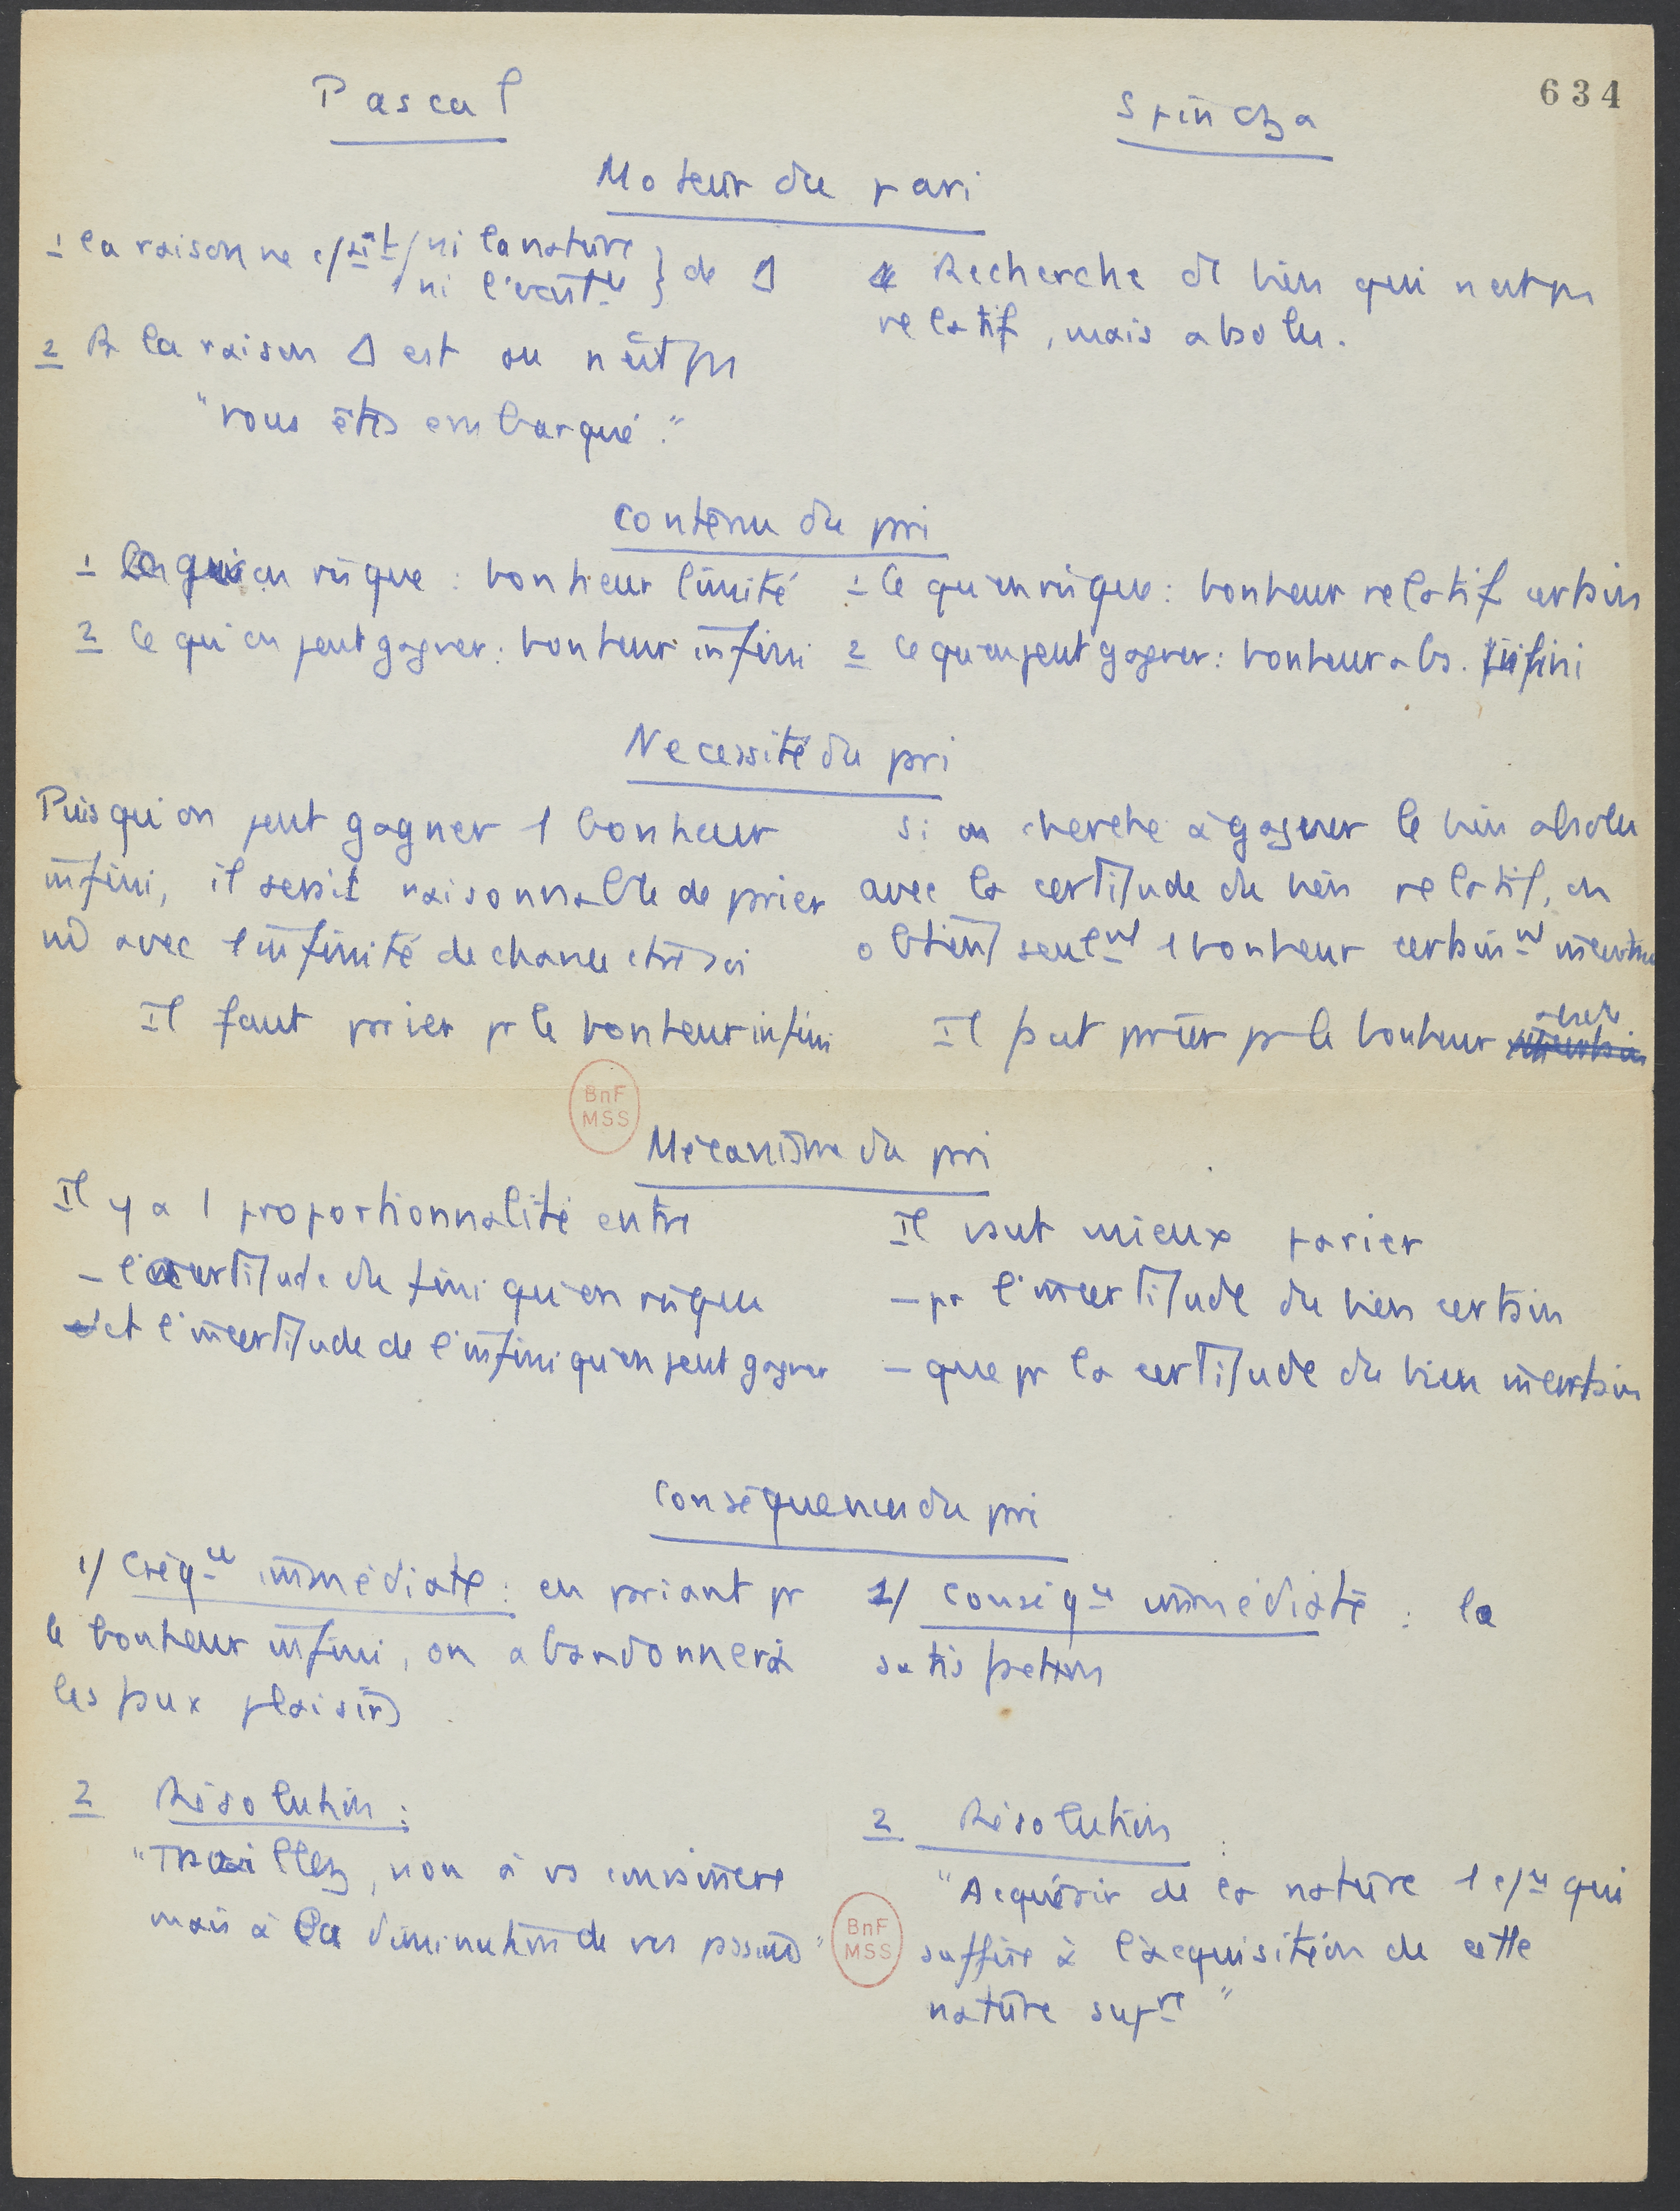 634
Pascal
Spinoza
Moteur du pari
1 la raison ne c/aît ni la nature } de Δ
ni l'exist^ce
2 la raison Δ est ou n'est pas
"vous êtes embarqué."
Recherche du bien qui n'est pas
relatif, mais absolu.
Contenu du pari
1 Ce qu'on risque : bonheur limité
2 Ce qu'on peut gagner : bonheur infini
1 Ce qu'on risque : bonheur relatif certain
2 Ce qu'on peut gagner : bonheur abs. infini
Necessité du pari
Puisqu'on peut gagner 1 bonheur
infini, il serait raisonnable de parier
avec 1 infinité de chances
Il faut parier pr le bonheur infini
Si on cherche à gagner le bien absolu
avec la certitude du bien relatif, on
obtient seul^mt 1 bonheur certain^mt incertain
Il faut parier pr le bonheur
Mécanisme du pari
Il y a 1 proportionnalité entre
- l'incertitude du fini qu'on risque
et l'incertitude de l'infini qu'on peut gagner
Il vaut mieux parier
- pr l'incertitude du bien certain
- que pr la certitude du bien incertain
Conséquences du pari
1/ Cséq^ce immédiate : en pariant pr
le bonheur infini, on abandonnera
les faux plaisirs
1/ Conséq^ce immédiate : la
satisfaction
2 Résolution :
"Travaillez, non à vs convaincre
mais à la diminution de vos passions"
2 Résolution :
"Acquérir de la nature 1 c/^ce qui
suffire à l'acquisition de cette
nature sup^re"
BnF
MSS
BnF
MSS